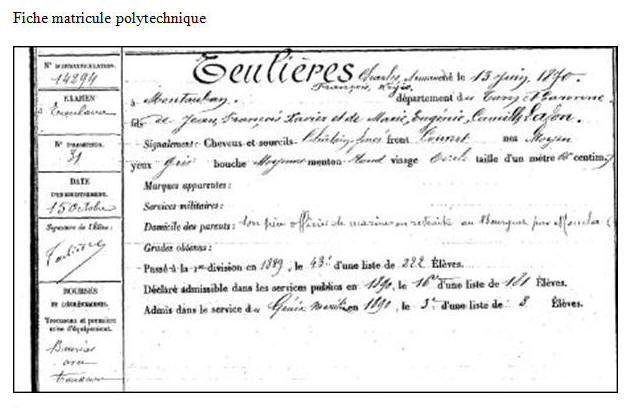 Fiche matricule polytechnique
N° D'IMMATRICULATION.
14294
EXAMEN
à Toulouse
N° D'ADMISSION.
31
DATE
15 Octobre
Signature de l'Élève:
Teulières
BOURSES
Trousseau et première mise d'équipement.
Boursier
avec
trousseau
Teulières Charles,
François, né le 13 juin
à Montauban. département du Tarn et Garonne
fils de Jean, François Xavier et de Marie, Eugénie, Camille Lafon.
Signalement: Cheveux et sourcils Châtain foncé front Couvert nez Moyen
yeux Gris bouche Moyenne menton Rond visage Ovale taille d'un mètre 66 centim.
Marques apparentes:
Services militaires:
Domicile des parents: Son père officier de marine en retraite au par
Grades obtenus:
Passé à la 1re division en 1889, le 43e d'une liste de 222 Élèves.
Déclaré admissible dans les services publics en 1890, le 16e d'une liste de 181 Élèves.
Admis dans le service du Génie maritime en 1890, le 3e d'une liste de 8 Élèves.